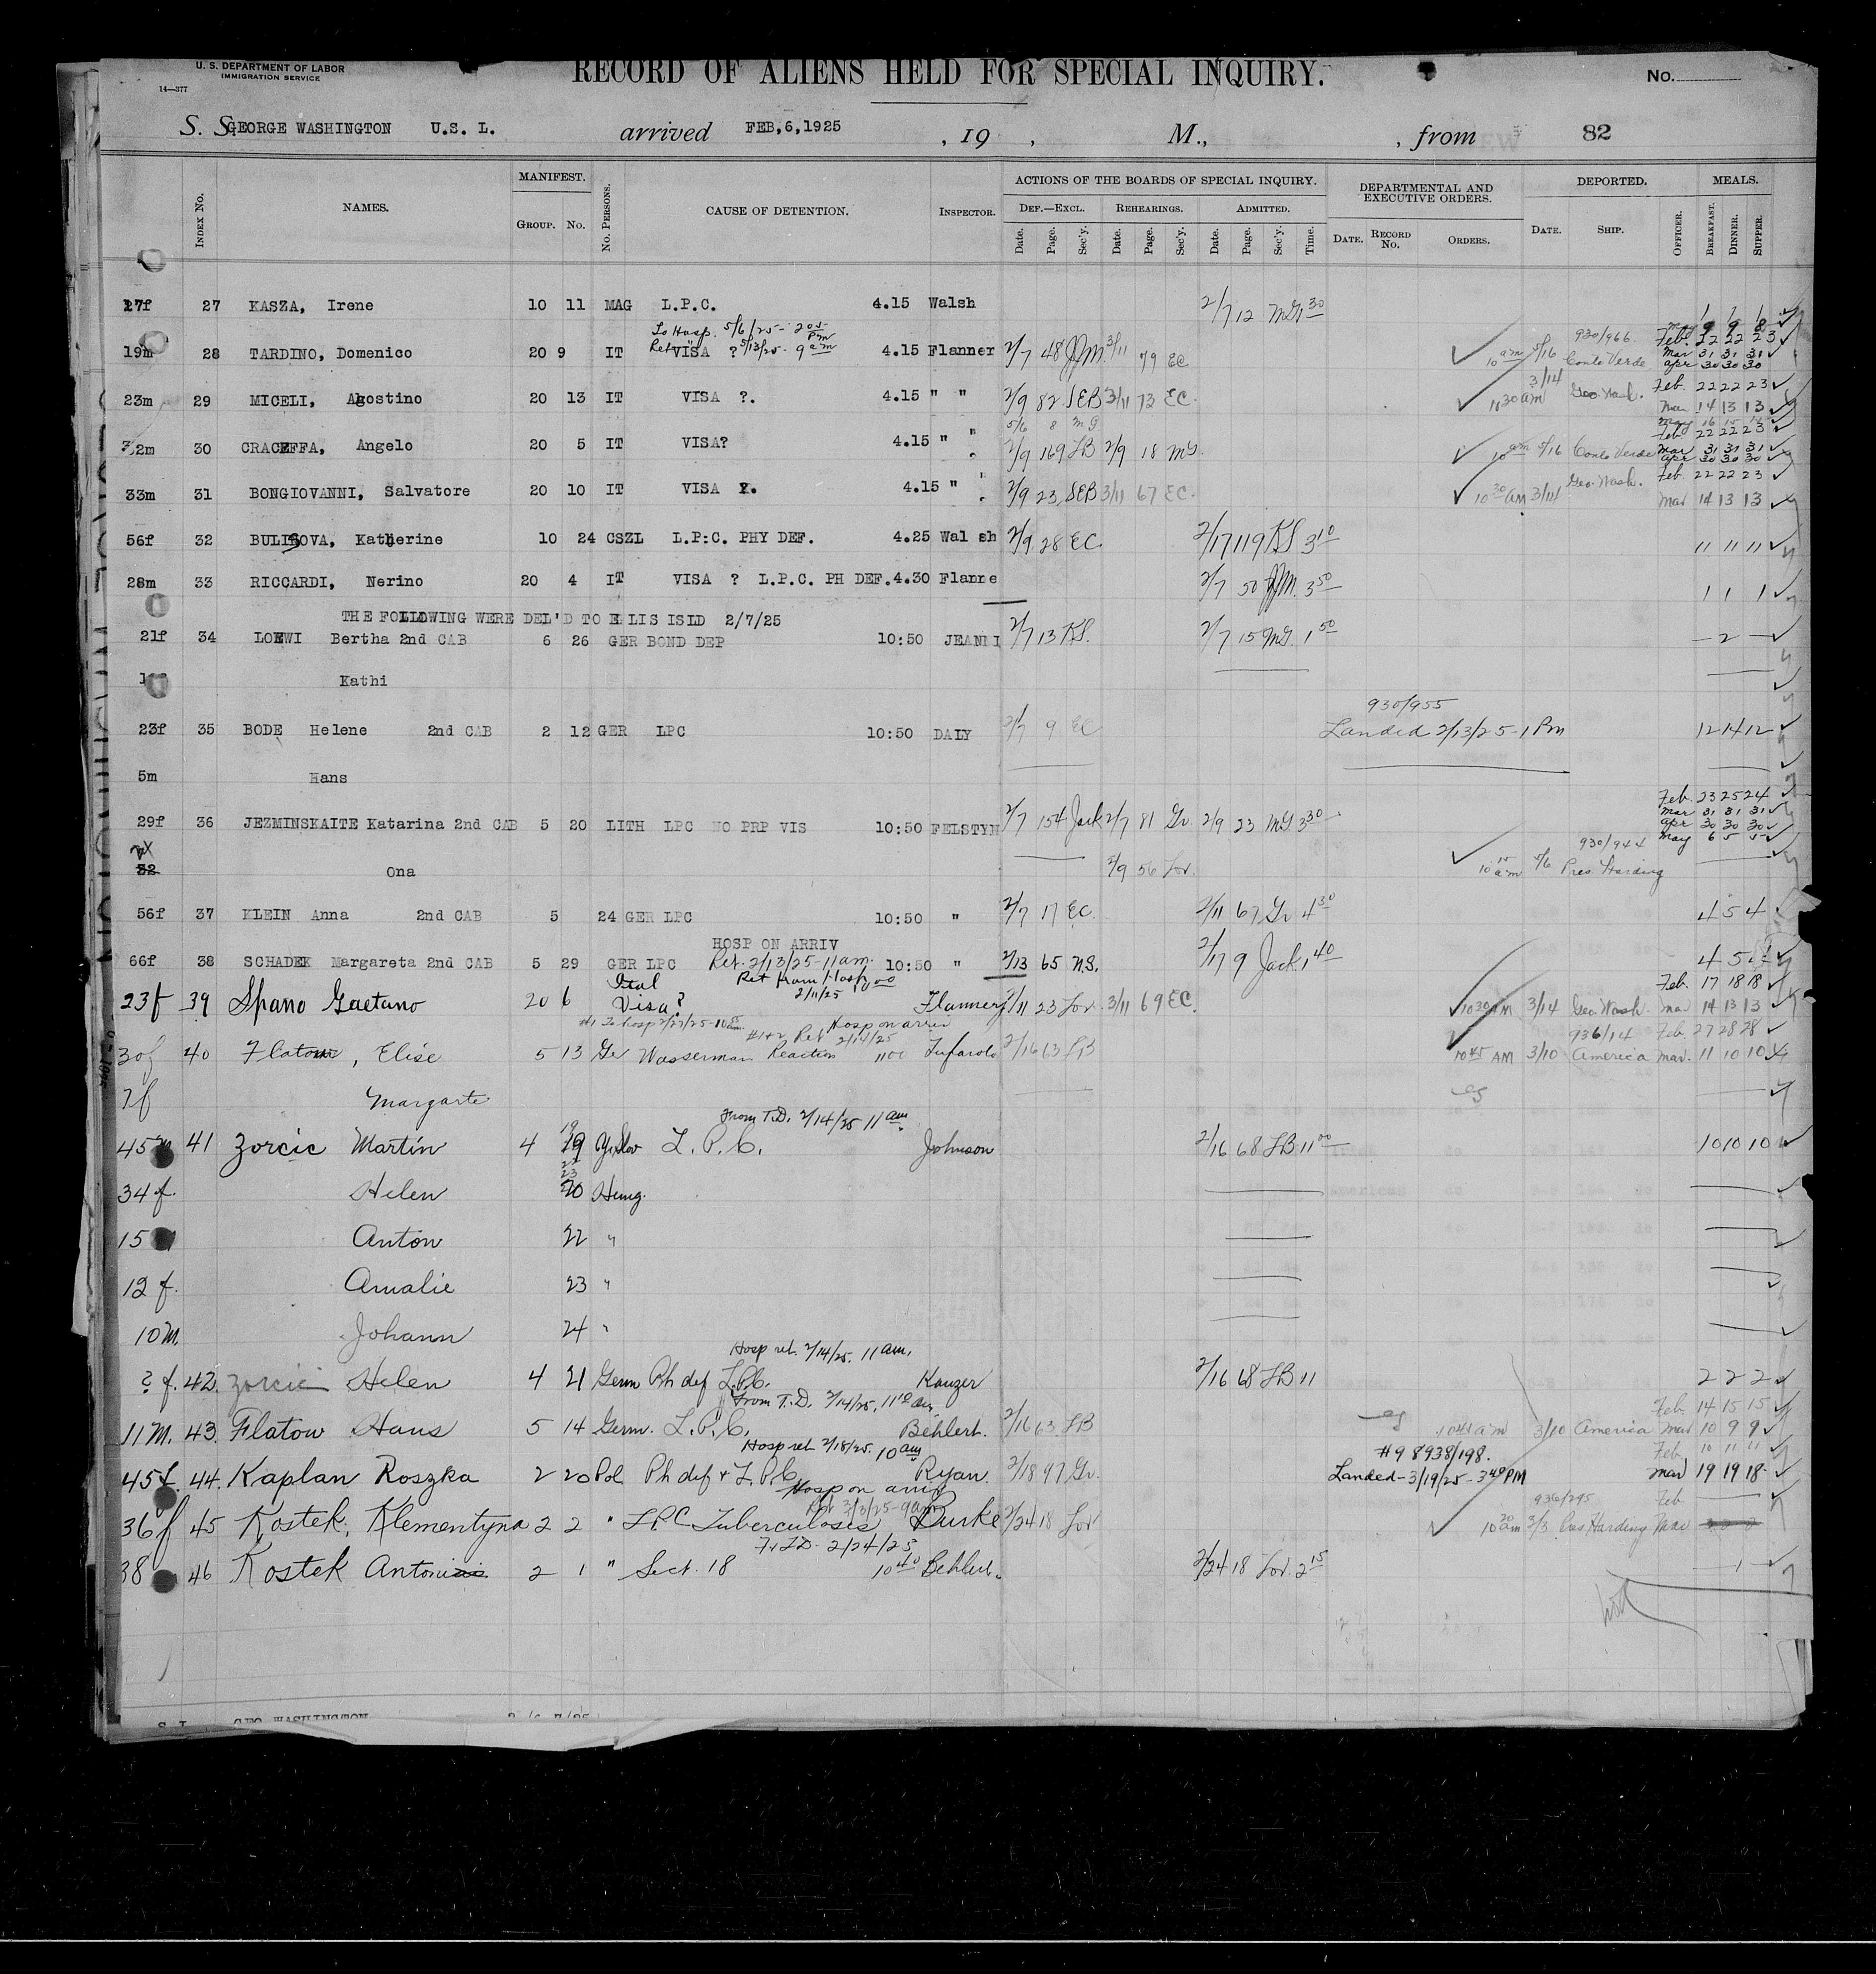 U. S. DEPARTMENT OF LABOR
IMMIGRATION SERVICE
14—377
RECORD OF ALIENS HELD FOR SPECIAL INQUIRY.
No.
S. S. GEORGE WASHINGTON U.S. L. arrived FEB,6,1925 , 19 , M., , from 82
MANIFEST. ACTIONS OF THE BOARDS OF SPECIAL INQUIRY. DEPARTMENTAL AND EXECUTIVE ORDERS. DEPORTED. MEALS.
Index No. NAMES. GROUP. No. No. PERSONS. CAUSE OF DETENTION. INSPECTOR. DEF.—EXCL. REHEARINGS. ADMITTED.
Date. Page. Sec'y. Date. Page. Sec'y. Date. Page. Sec'y. Time. DATE. RECORD No. ORDERS. DATE. SHIP. OFFICER. BREAKFAST. DINNER. SUPPER.
27f 27 KASZA, Irene 10 11 MAG L.P.C. 4.15 Walsh 2/7 12 1 1 1
To Hosp. 5/6/25- 2 05 Pm
930/966 May 9 9 8
Ret 5/13/25- 9 am Feb. 22 22 23
19m 28 TARDINO, Domenico 20 9 IT VISA ? 4.15 Flanner 2/7 48 JJM 3/11 79 EC 10 am 5/16 Conte Verde Mar 31 31 31
Apr 30 30 30
23m 29 MICELI, Agostino 20 13 IT VISA ?. 4.15 " " 2/9 82 SEB 3/11 73 EC. 10 30 am 3/14 Geo. Wash. Feb. 22 22 23
Mar 14 13 13
5/6 8 MG
Feb 22 22 23
32m 30 CRACEFFA, Angelo 20 5 IT VISA? 4.15 " " 2/9 169 LB 2/9 18 MG. 10 am 5/16 Conte Verde Mar 31 31 31
Apr 30 30 30
33m 31 BONGIOVANNI, Salvatore 20 10 IT VISA ?. 4.15 " " 2/9 23 SEB 3/11 67 EC. 10 30 AM 3/14 Geo. Wash. Feb. 22 22 23
Mar 14 13 13
56f 32 BULISOVA, Katherine 10 24 CSZL L.P:C. PHY DEF. 4.25 Wal sh 2/9 28 EC. 2/17 119 KS 3 10 11 11 11
28m 33 RICCARDI, Nerino 20 4 IT VISA ? L.P.C. PH DEF. 4.30 Flanne 2/7 50 JJM. 3 50 1 1 1
THE FOLLOWING WERE DEL'D TO ELLIS ISLD 2/7/25
21f 34 LOEWI Bertha 2nd CAB 6 26 GER BOND DEP 10:50 JEANNI 2/7 13 KS. 2/7 15 MG. 1 50 — 2 —
Kathi
930/955
23f 35 BODE Helene 2nd CAB 2 12 GER LPC 10:50 DALY 2/7 9 EC Landed 2/13/25-1 Pm 12 14 12
5m Hans
Feb. 23 25 24
Mar 31 31 31
29f 36 JEZMINSKAITE Katarina 2nd CAB 5 20 LITH LPC NO PRP VIS 10:50 FELSTYN 2/7 154 Jack 2/7 81 Gr. 2/9 23 MG 3 30 Apr 30 30 30
930/944 May 6 5 5
Ona 2/9 56 Lov. 10 15 am 5/6 Pres. Harding
56f 37 KLEIN Anna 2nd CAB 5 24 GER LPC 10:50 " 2/7 17 EC. 2/11 67 Gr 4 30 4 5 4
HOSP ON ARRIV
66f 38 SCHADEK Margareta 2nd CAB 5 29 GER LPC Ret. 2/13/25-11am. 10:50 " 2/13 65 N.S. 2/17 9 Jack 1 40 4 5 4
Ital Ret from Hosp 2/11/25 Feb. 17 18 18
23f 39 Spano Gaetano 20 6 Visa? Flannery 2/11 23 Lov. 3/11 69 EC. 10 30 AM 3/14 Geo Wash. Mar 14 13 13
#1 To Hosp 2/27/25-10 am #1+2 Ret 2/14/25 Hosp on arriv 936/14 Feb. 27 28 28
30f 40 Flatow, Elise 5 13 Ge Wasserman Reaction 11 00 Tufarolo 2/16 63 LB 10 45 AM 3/10 America Mar. 11 10 10
7f Margarte
From T.D. 2/14/25 11 am.
45m 41 Zorcic Martin 4 19 Y.Slov L.P.C. Johnson 2/16 68 LB 11 00 10 10 10
34 f. Helen 20 Hung.
15 Anton 22 "
12 f. Amalie 23 "
10 M. Johann 24 "
Hosp ret. 2/14/25. 11 am.
? f. 42. Zorcic Helen 4 21 Germ Ph def L.P.C. Kanzer 2/16 68 LB 11 2 2 2
From T.D. 2/14/25, 11 10 am Feb. 14 15 15
11 M. 43. Flatow Hans 5 14 Germ. L.P.C. Behlert. 2/16 63 LB 3/10 America Mar 10 9 9
Hosp ret 2/18/25. 10 am #98938/198. Feb. 10 11 11
45f. 44. Kaplan Roszka 2 20 Pol Ph def + L.P.C. Ryan. 2/18 97 Gr. Landed-3/19/25-3 40 PM Mar 19 19 18
Hosp on arriv
Ret 3/3/25-9am 936/295 Feb
36f 45 Kostek, Klementyna 2 2 " L.P.C. Tuberculosis Burke 2/24 18 Lov 10 20 am 3/3 Pres Harding Mar
Fr T.D. 2/24/25
38 46 Kostek Antoni 2 1 " Sect. 18 10 40 Behlert. 2/24 18 Lov. 2 15 1
S I GEO WASHINGTON